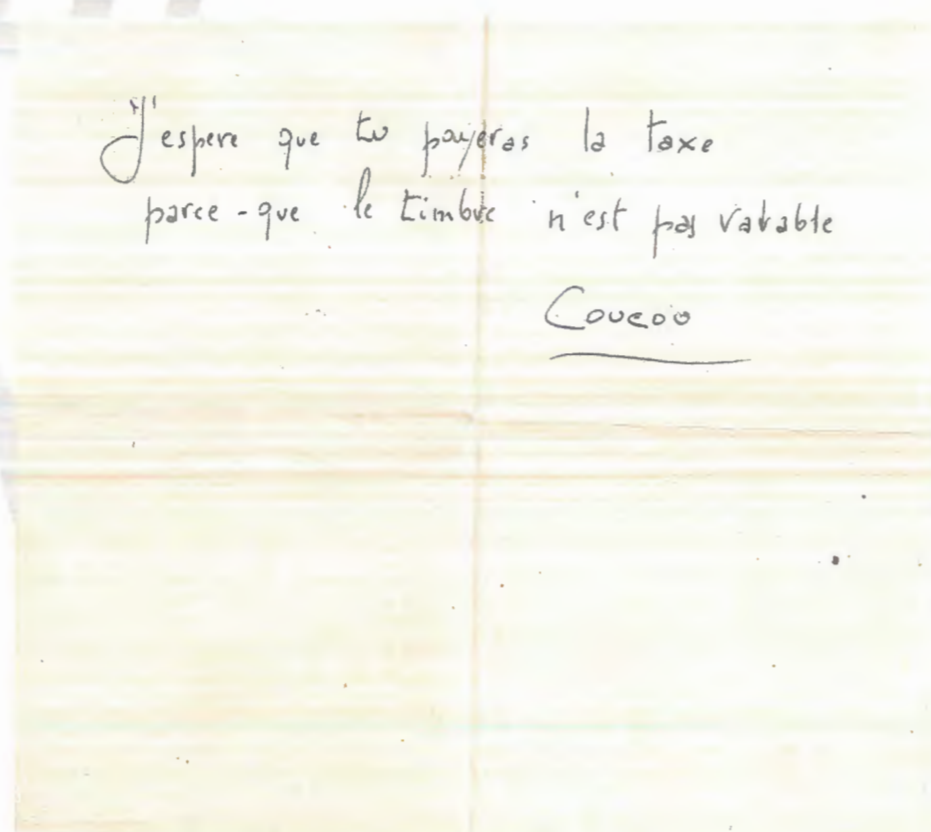 J'espere que tu payeras la taxe
parce-que le timbre n'est pas valable
Coucou